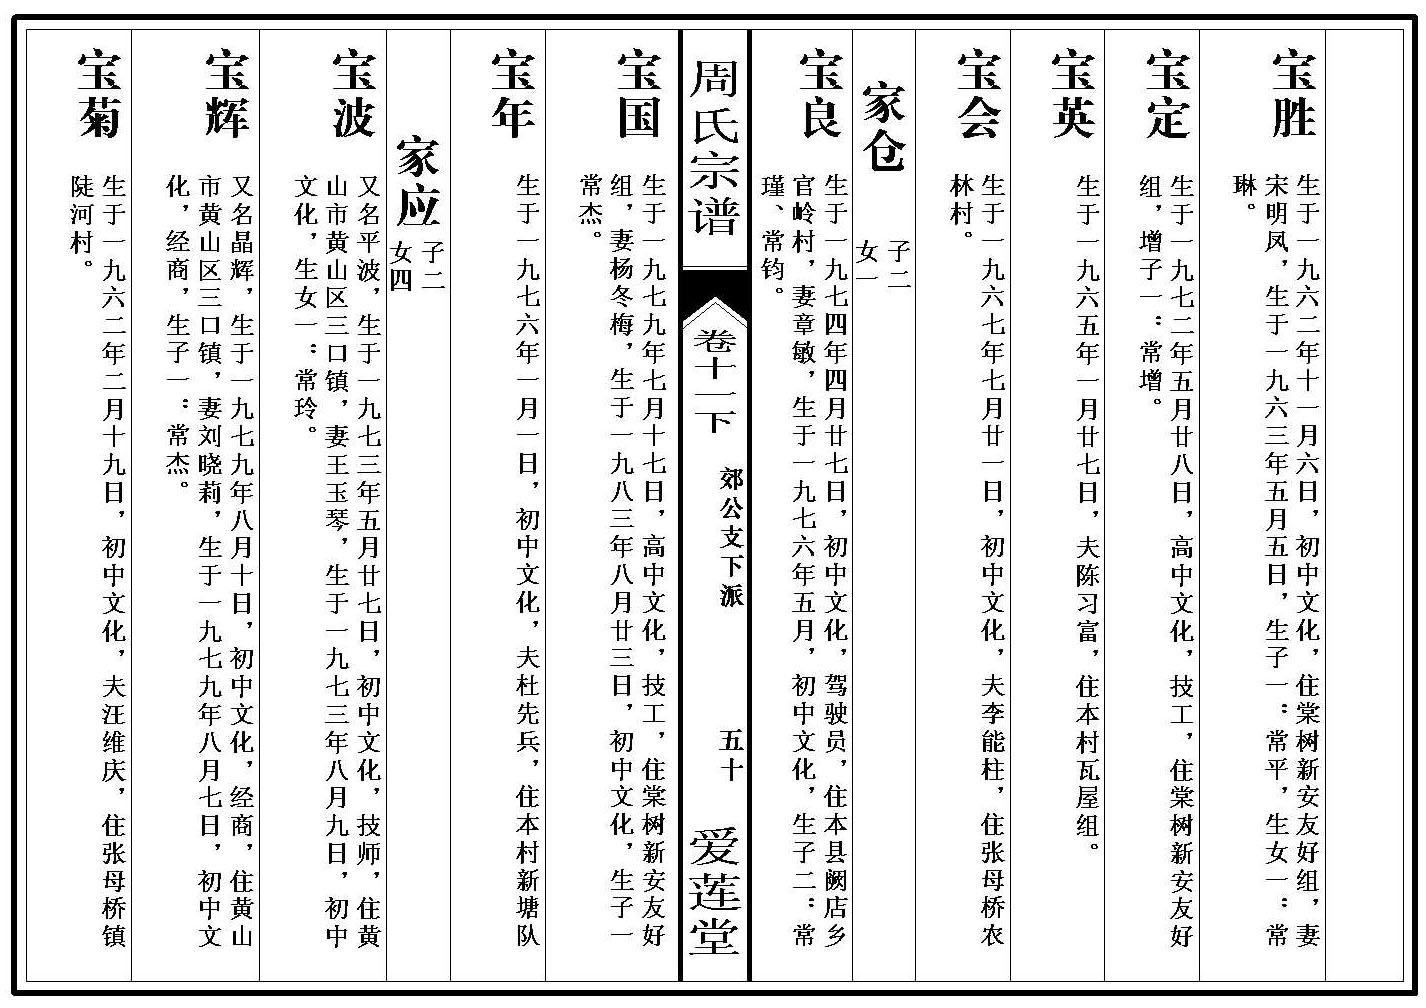 宝胜
生于一九六二年十一月六日，初中文化，住棠树新安友好组，妻
宋明凤，生于一九六三年五月五日，生子一：常平，生女一：常
琳。
宝定
生于一九七二年五月廿八日，高中文化，技工，住棠树新安友好
组，增子一：常增。
宝英
生于一九六五年一月廿七日，夫陈习富，住本村瓦屋组。
宝会
生于一九六七年七月廿一日，初中文化，夫李能柱，住张母桥农
林村。
家仓
子二
女一
宝良
生于一九七四年四月廿七日，初中文化，驾驶员，住本县阙店乡
官岭村，妻章敏，生于一九七六年五月，初中文化，生子二：常
瑾、常钧。
周氏宗谱
卷十二下
郊公支下派
五十
爱莲堂
宝国
生于一九七九年七月十七日，高中文化，技工，住棠树新安友好
组，妻杨冬梅，生于一九八三年八月廿三日，初中文化，生子一
常杰。
宝年
生于一九七六年一月一日，初中文化，夫杜先兵，住本村新塘队
家应
子二
女四
宝波
又名平波，生于一九七三年五月廿七日，初中文化，技师，住黄
山市黄山区三口镇，妻王玉琴，生于一九七三年八月九日，初中
文化，生女一：常玲。
宝辉
又名晶辉，生于一九七九年八月十日，初中文化，经商，住黄山
市黄山区三口镇，妻刘晓莉，生于一九七九年八月七日，初中文
化，经商，生子一：常杰。
宝菊
生于一九六二年二月十九日，初中文化，夫汪维庆，住张母桥镇
陡河村。